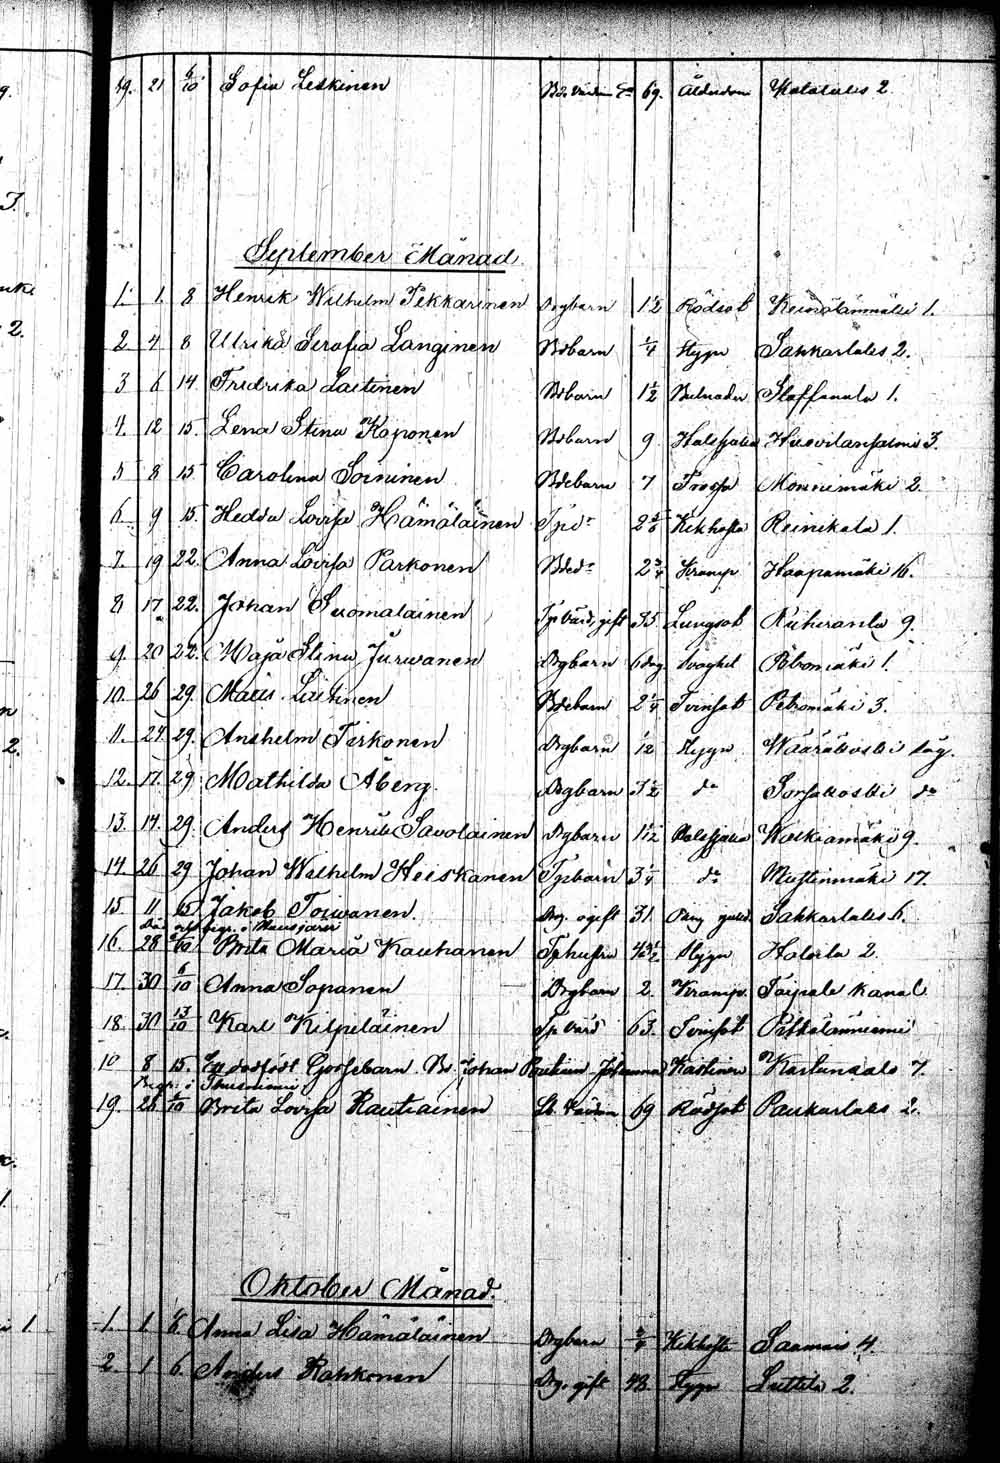 19. 21 6/10 Sofia Leskinen Bde Enkan 69. Ålderdom 2
September Månad
1. 1. 8 Henrik Wilhelm Pekkarinen Drgbarn 1½ Rödsot 1.
2 4 8 Ulrika Serafia Langinen Bdbarn ¼ Okän Sakkarlaks 2.
3 6 14. Fridrika Laitinen Bdbarn 1½ Staffanala 1.
4. 12 15. Lena Stina Koponen Bdbarn 9. Halssjuka Huovilansalmi 3.
5 8 15 Carolina Soininen Bdebarn 7 Frossa Monnimäki 2.
6. 9 15. Hedda Lovisa Hämäläinen Kikhosta Reinikala 1.
7. 19 22. Anna Lovisa Parkonen 2¾ Kramp Haapamäki 16.
8 17 22. Johan Suomalainen gift 35. Lungsot Riihiranta 9.
9. 20 22. Maja Stina Jurwanen Drgbarn 6 dag Svaghet 1.
10. 26 29. Maria Laitinen Bdebarn 2¼ Tvinsot Petromäki 3.
11. 24 29. Anshelm Tirkonen Drgbarn 1/2 Wääräkoski såg.
12. 17. 29. Mathilda Åberg. Drgbarn 3½ do Sorsakoski do
13. 14. 29. Anders Henrik Savolainen Drgbarn 1 1/12 Halssjuka 9.
14. 26 29 Johan Wilhelm Heiskanen Tpbarn 3¼ do Mustinmäki 17.
15 11 15 Jakob Toiwanen. Drg. ogift 31. Sakkarlaks 6.
Död och begr. i Maaninga
16. 28 /10 Brita Maria Kauhanen Tphustru Halola 2.
17. 30 6/10 Anna Sopanen Drgbarn 2. Kramp. Taipale Kanal
18. 30 13/10 Karl Kilpeläinen 63. Tvinsot Pitkälänniemi
10 8 15. Ett dödfödt Gossebarn. Bd. Johan Kastinen 7.
Begr. i Thusniemi
19. 28 /10 Brita Lovisa Rautiainen 69 Rödsot Paukarlaks 2.
Oktober Månad.
1. 1. 6. Anna Lisa Hämäläinen Drgbarn ¾ Kikhosta Saamais 4.
2. 1 6. Anders Rahkonen Drg. gift 48. Luttila 2.